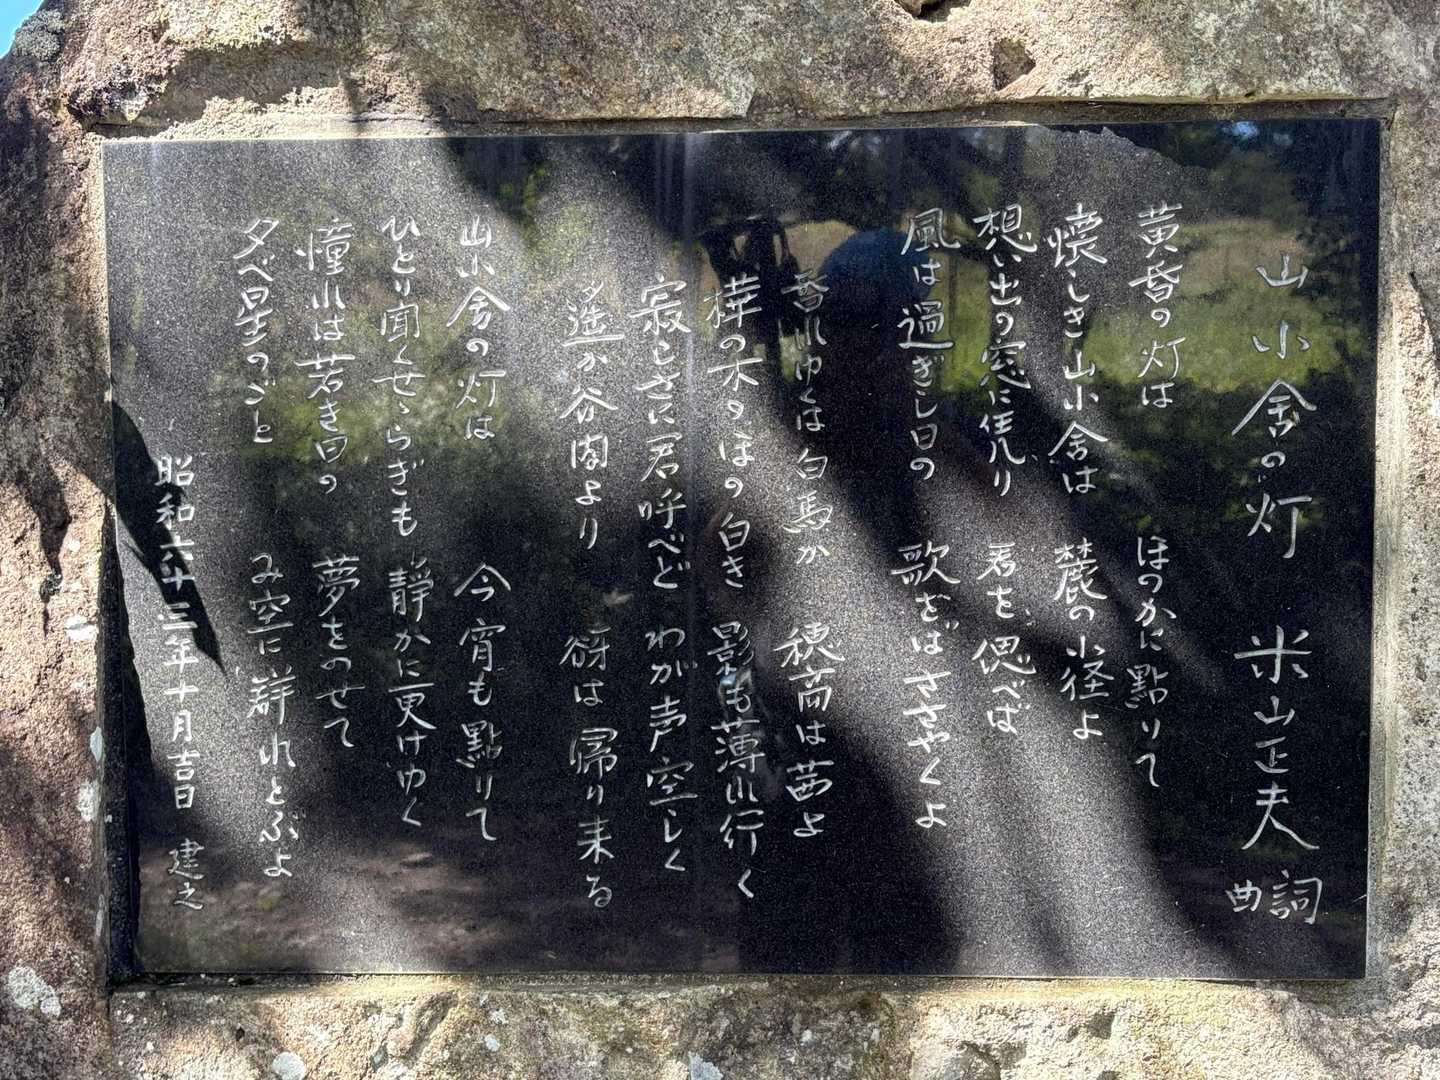 山小舎の灯 米山正夫 詞曲
黄昏の灯は ほのかに點りて
懐しき山小舎は 麓の小径よ
想い出の窓に凭り 君を偲べば
風は過ぎし日の 歌をばささやくよ
昏れゆくは白馬か 穂高は茜よ
樺の木のほの白き 影も薄れ行く
寂しさに君呼べど わが声空しく
遥か谷間より 谺は帰り来る
山小舎の灯は 今宵も點りて
ひとり聞くせゝらぎも 静かに更けゆく
憧れは若き日の 夢をのせて
夕べ星のごと み空に群れとぶよ
昭和六十三年十月吉日 建之